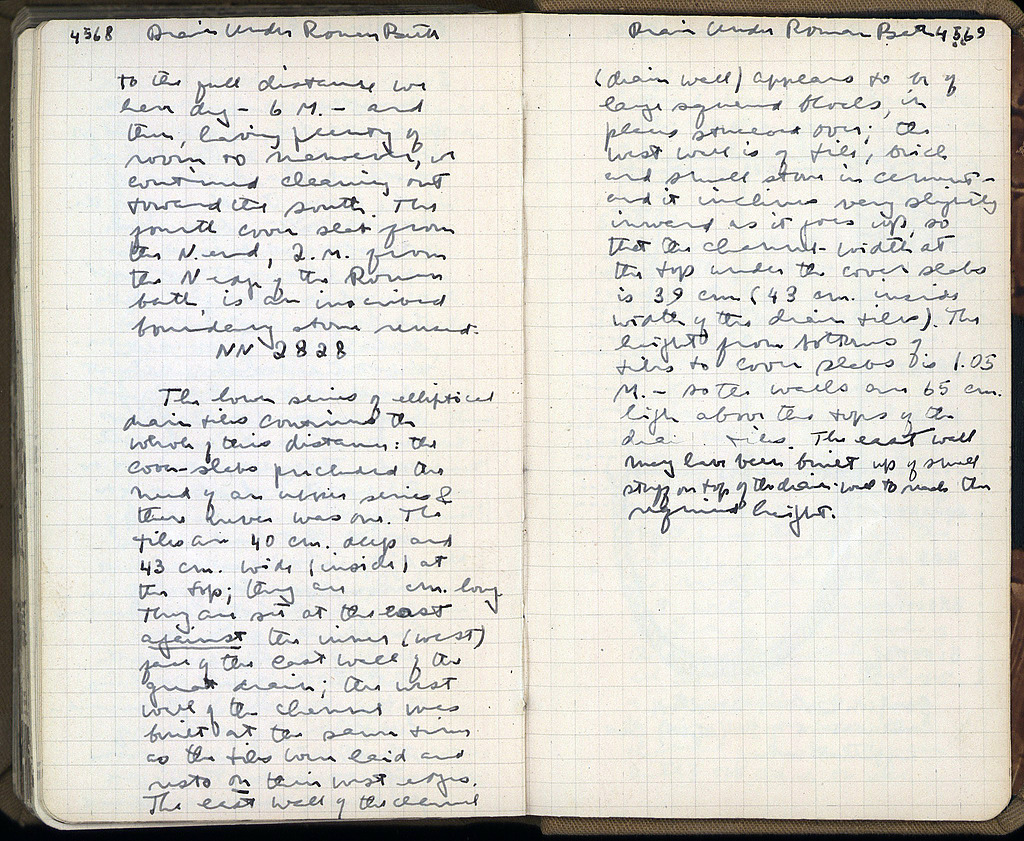 4568 Drain Under Roman Bath
to the full distance we
have dug - 6 M. - and
then, having plenty of
room to maneuver, we
continued clearing out
toward the south. The
fourth cover slab from
the N. end, 2. M. from
the N edge of the Roman
bath, is an inscribed
boundary stone reused.
NN 2828
The lower series of elliptical
drain tiles continued the
whole of this distance: the
cover-slabs precluded the
need of an upper series &
there never was one. The
tiles are 40 cm. deep and
43 cm. wide (inside) at
the top; they are cm. long
They are set at the east
against the inner (west)
face of the east wall of the
great drain; the west
wall of the channel was
built at the same time
as the tiles were laid and
rests on their west edges.
The east wall of the channel
Drain Under Roman Bath 4569
(drain wall) appears to be of
large squared blocks, in
places stuccoed over; the
west wall is of tile, brick
and small stone in cement -
and it inclines very slightly
inward as it goes up, so
that the channel-width at
the top under the cover slabs
is 39 cm (43 cm. inside
width of the drain tiles). The
height from bottoms of
tiles to cover slabs is 1.05
M. - so the walls are 65 cm.
high above the tops of the
drain tiles. The east wall
may have been built up of small
stuff on top of the drain-wall to reach the
required height.